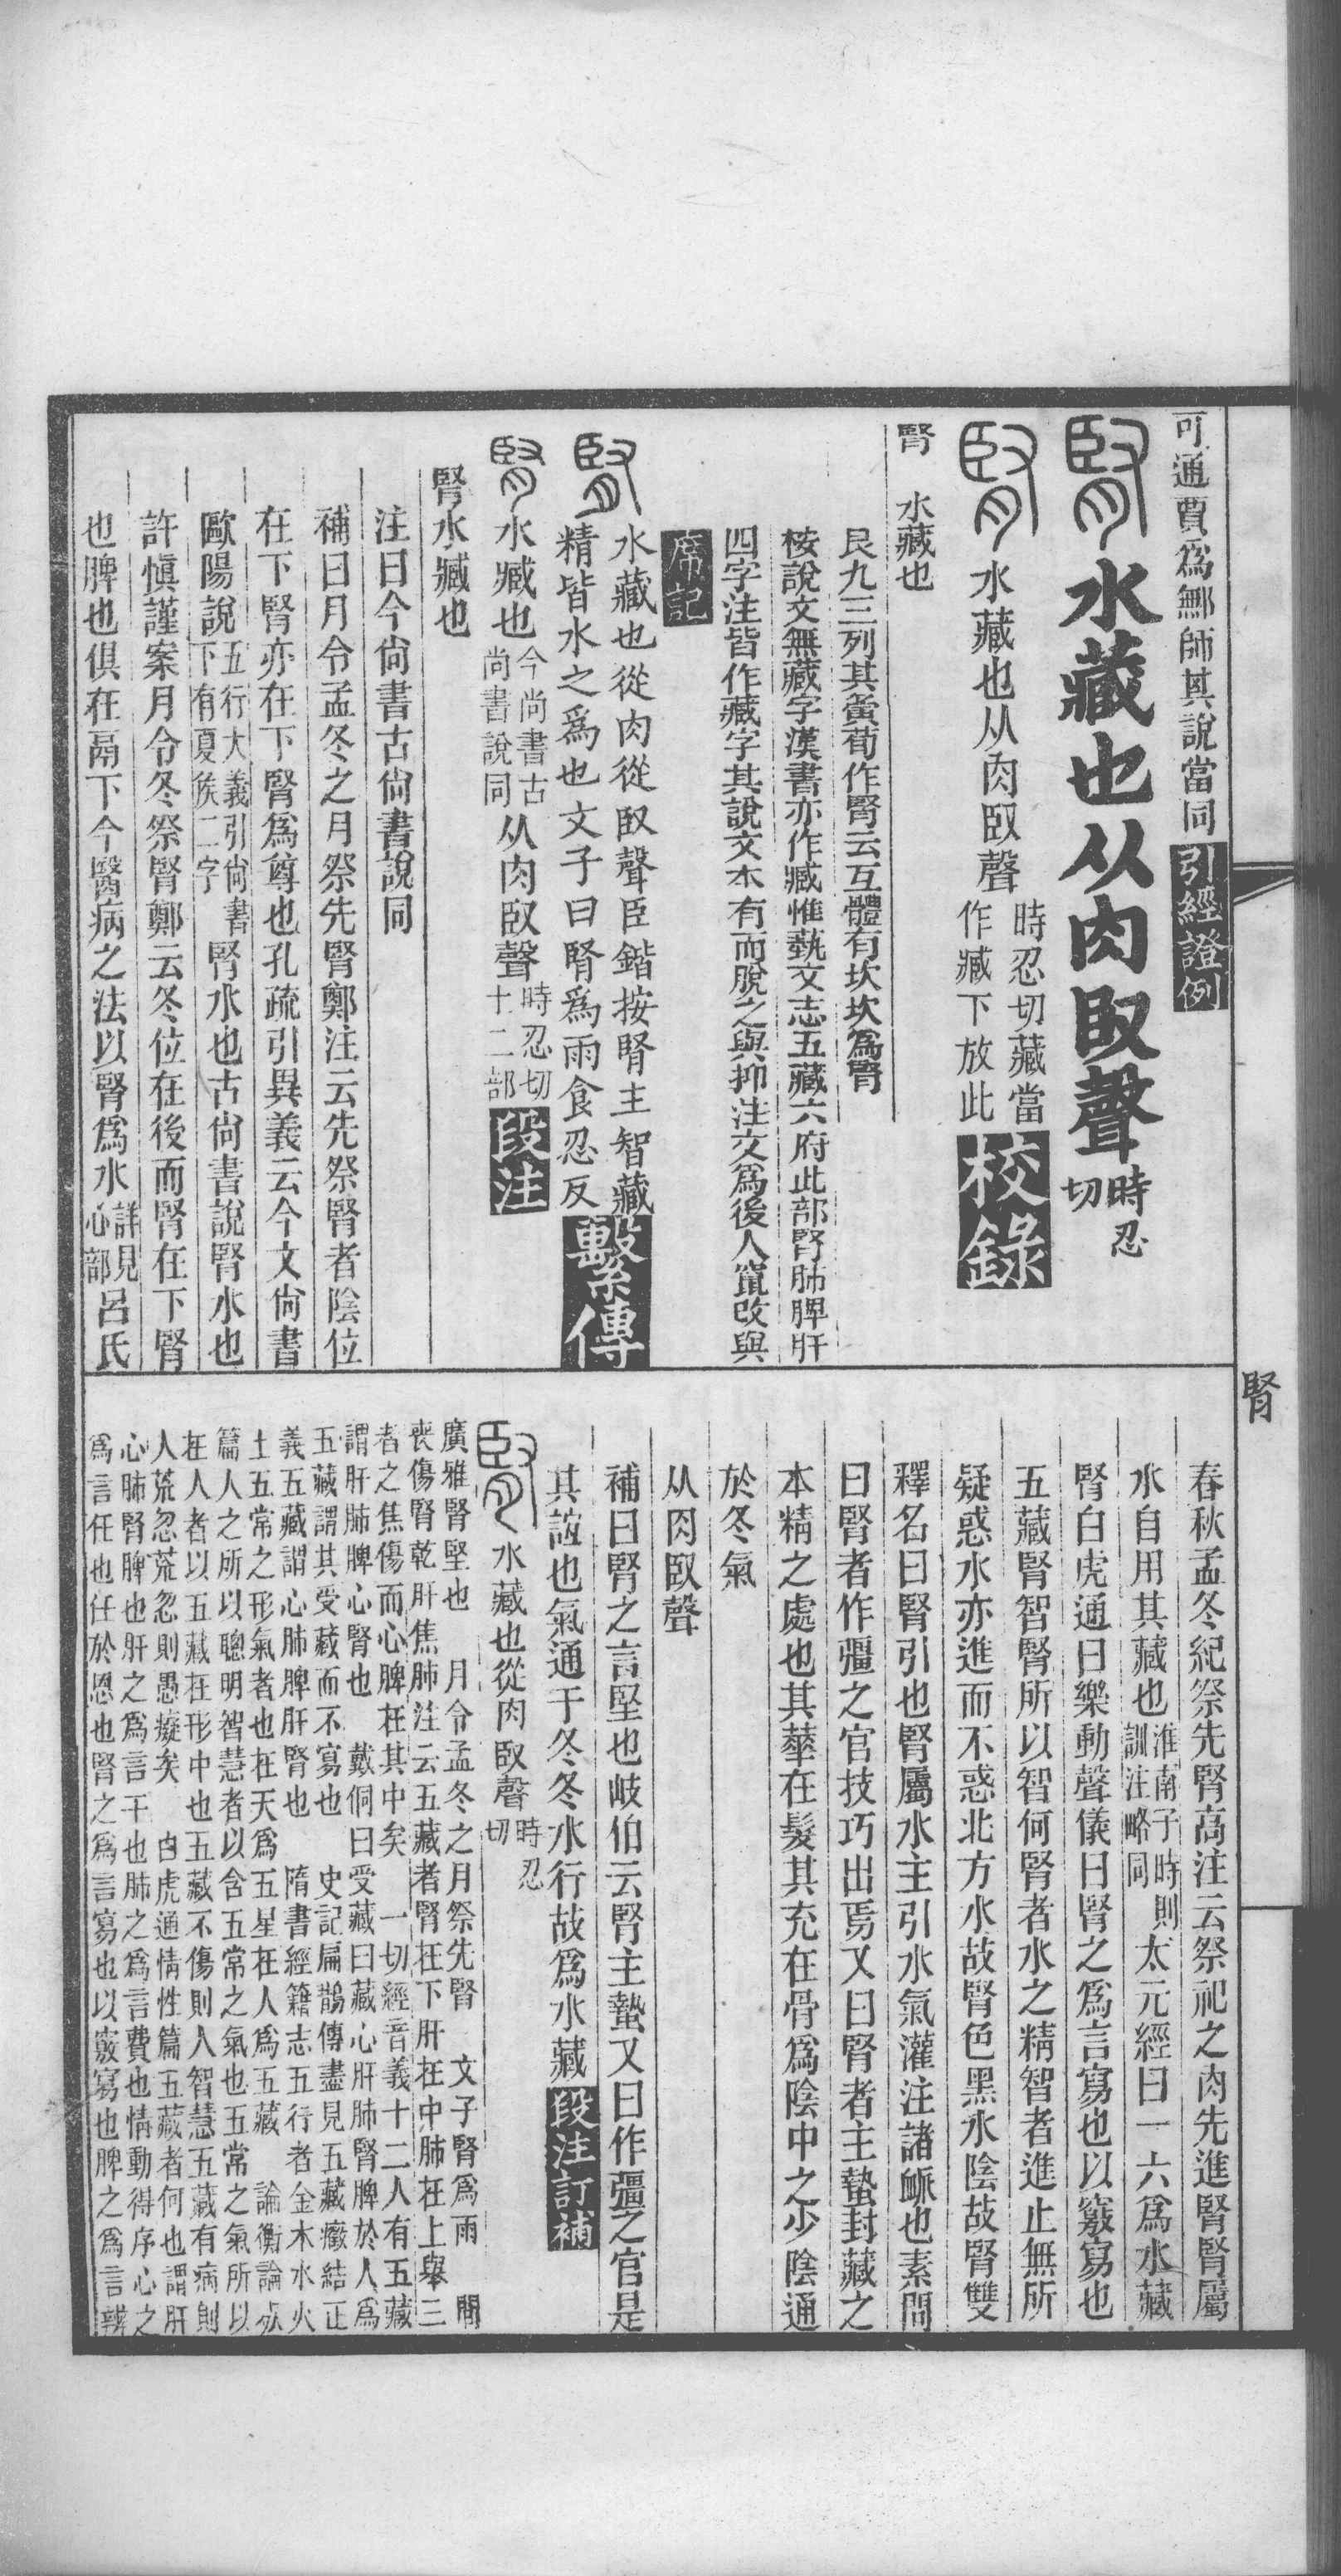 可通賈爲鄉師其說當同引經證例
腎水藏也从肉臤聲時忍切
腎水藏也从肉臤聲時忍切藏當作臧下放此校錄
腎 水藏也
艮九三列其夤荀作腎云互體有坎坎爲腎
桉說文無藏字漢書亦作臧惟藝文志五藏六府此部腎肺脾肝
四字注皆作藏字其說文本有而脫之與抑注文爲後人竄改與
席記
腎水藏也從肉從臤聲臣鍇按腎主智藏
精皆水之爲也文子曰腎爲雨食忍反繫傳
腎水臧也今尚書古尚書說同从肉臤聲時忍切十二部段注
腎水臧也
注曰今尚書古尚書說同
補曰月令孟冬之月祭先腎鄭注云先祭腎者陰位
在下腎亦在下腎爲尊也孔疏引異義云今文尚書
歐陽說五行大義引尚書下有夏侯二字腎水也古尚書說腎水也
許慎謹案月令冬祭腎鄭云冬位在後而腎在下腎
也脾也俱在鬲下今醫病之法以腎爲水詳見心部呂氏
春秋孟冬紀祭先腎高注云祭祀之肉先進腎腎屬
水自用其藏也淮南子時則訓注略同太元經曰一六爲水藏
腎白虎通曰樂動聲儀曰腎之爲言寫也以竅寫也
五藏腎智腎所以智何腎者水之精智者進止無所
疑惑水亦進而不惑北方水故腎色黑水陰故腎雙
釋名曰腎引也腎屬水主引水氣灌注諸脈也素問
曰腎者作彊之官技巧出焉又曰腎者主蟄封藏之
本精之處也其華在髮其充在骨爲陰中之少陰通
於冬氣
从肉臤聲
補曰腎之言堅也岐伯云腎主蟄又曰作彊之官是
其誼也氣通于冬冬水行故爲水藏段注訂補
腎水藏也從肉臤聲時忍切
廣雅腎堅也 月令孟冬之月祭先腎 文子腎爲雨 間
喪傷腎乾肝焦肺注云五藏者腎在下肝在中肺在上舉三
者之焦傷而心脾在其中矣 一切經音義十二人有五藏
謂肝肺脾心腎也 戴侗曰受藏曰藏心肝肺腎脾於人爲
五藏謂其受藏而不寫也 史記扁鵲傳盡見五藏癥結正
義五藏謂心肺脾肝腎也 隋書經籍志五行者金木水火
土五常之形氣者也在天爲五星在人爲五藏 論衡論死
篇人之所以聰明智慧者以含五常之氣也五常之氣所以
在人者以五藏在形中也五藏不傷則人智慧五藏有病則
人荒忽荒忽則愚癡矣 白虎通情性篇五藏者何也謂肝
心肺腎脾也肝之爲言干也肺之爲言費也情動得序心之
爲言任也任於恩也腎之爲言寫也以竅寫也脾之爲言辨
腎